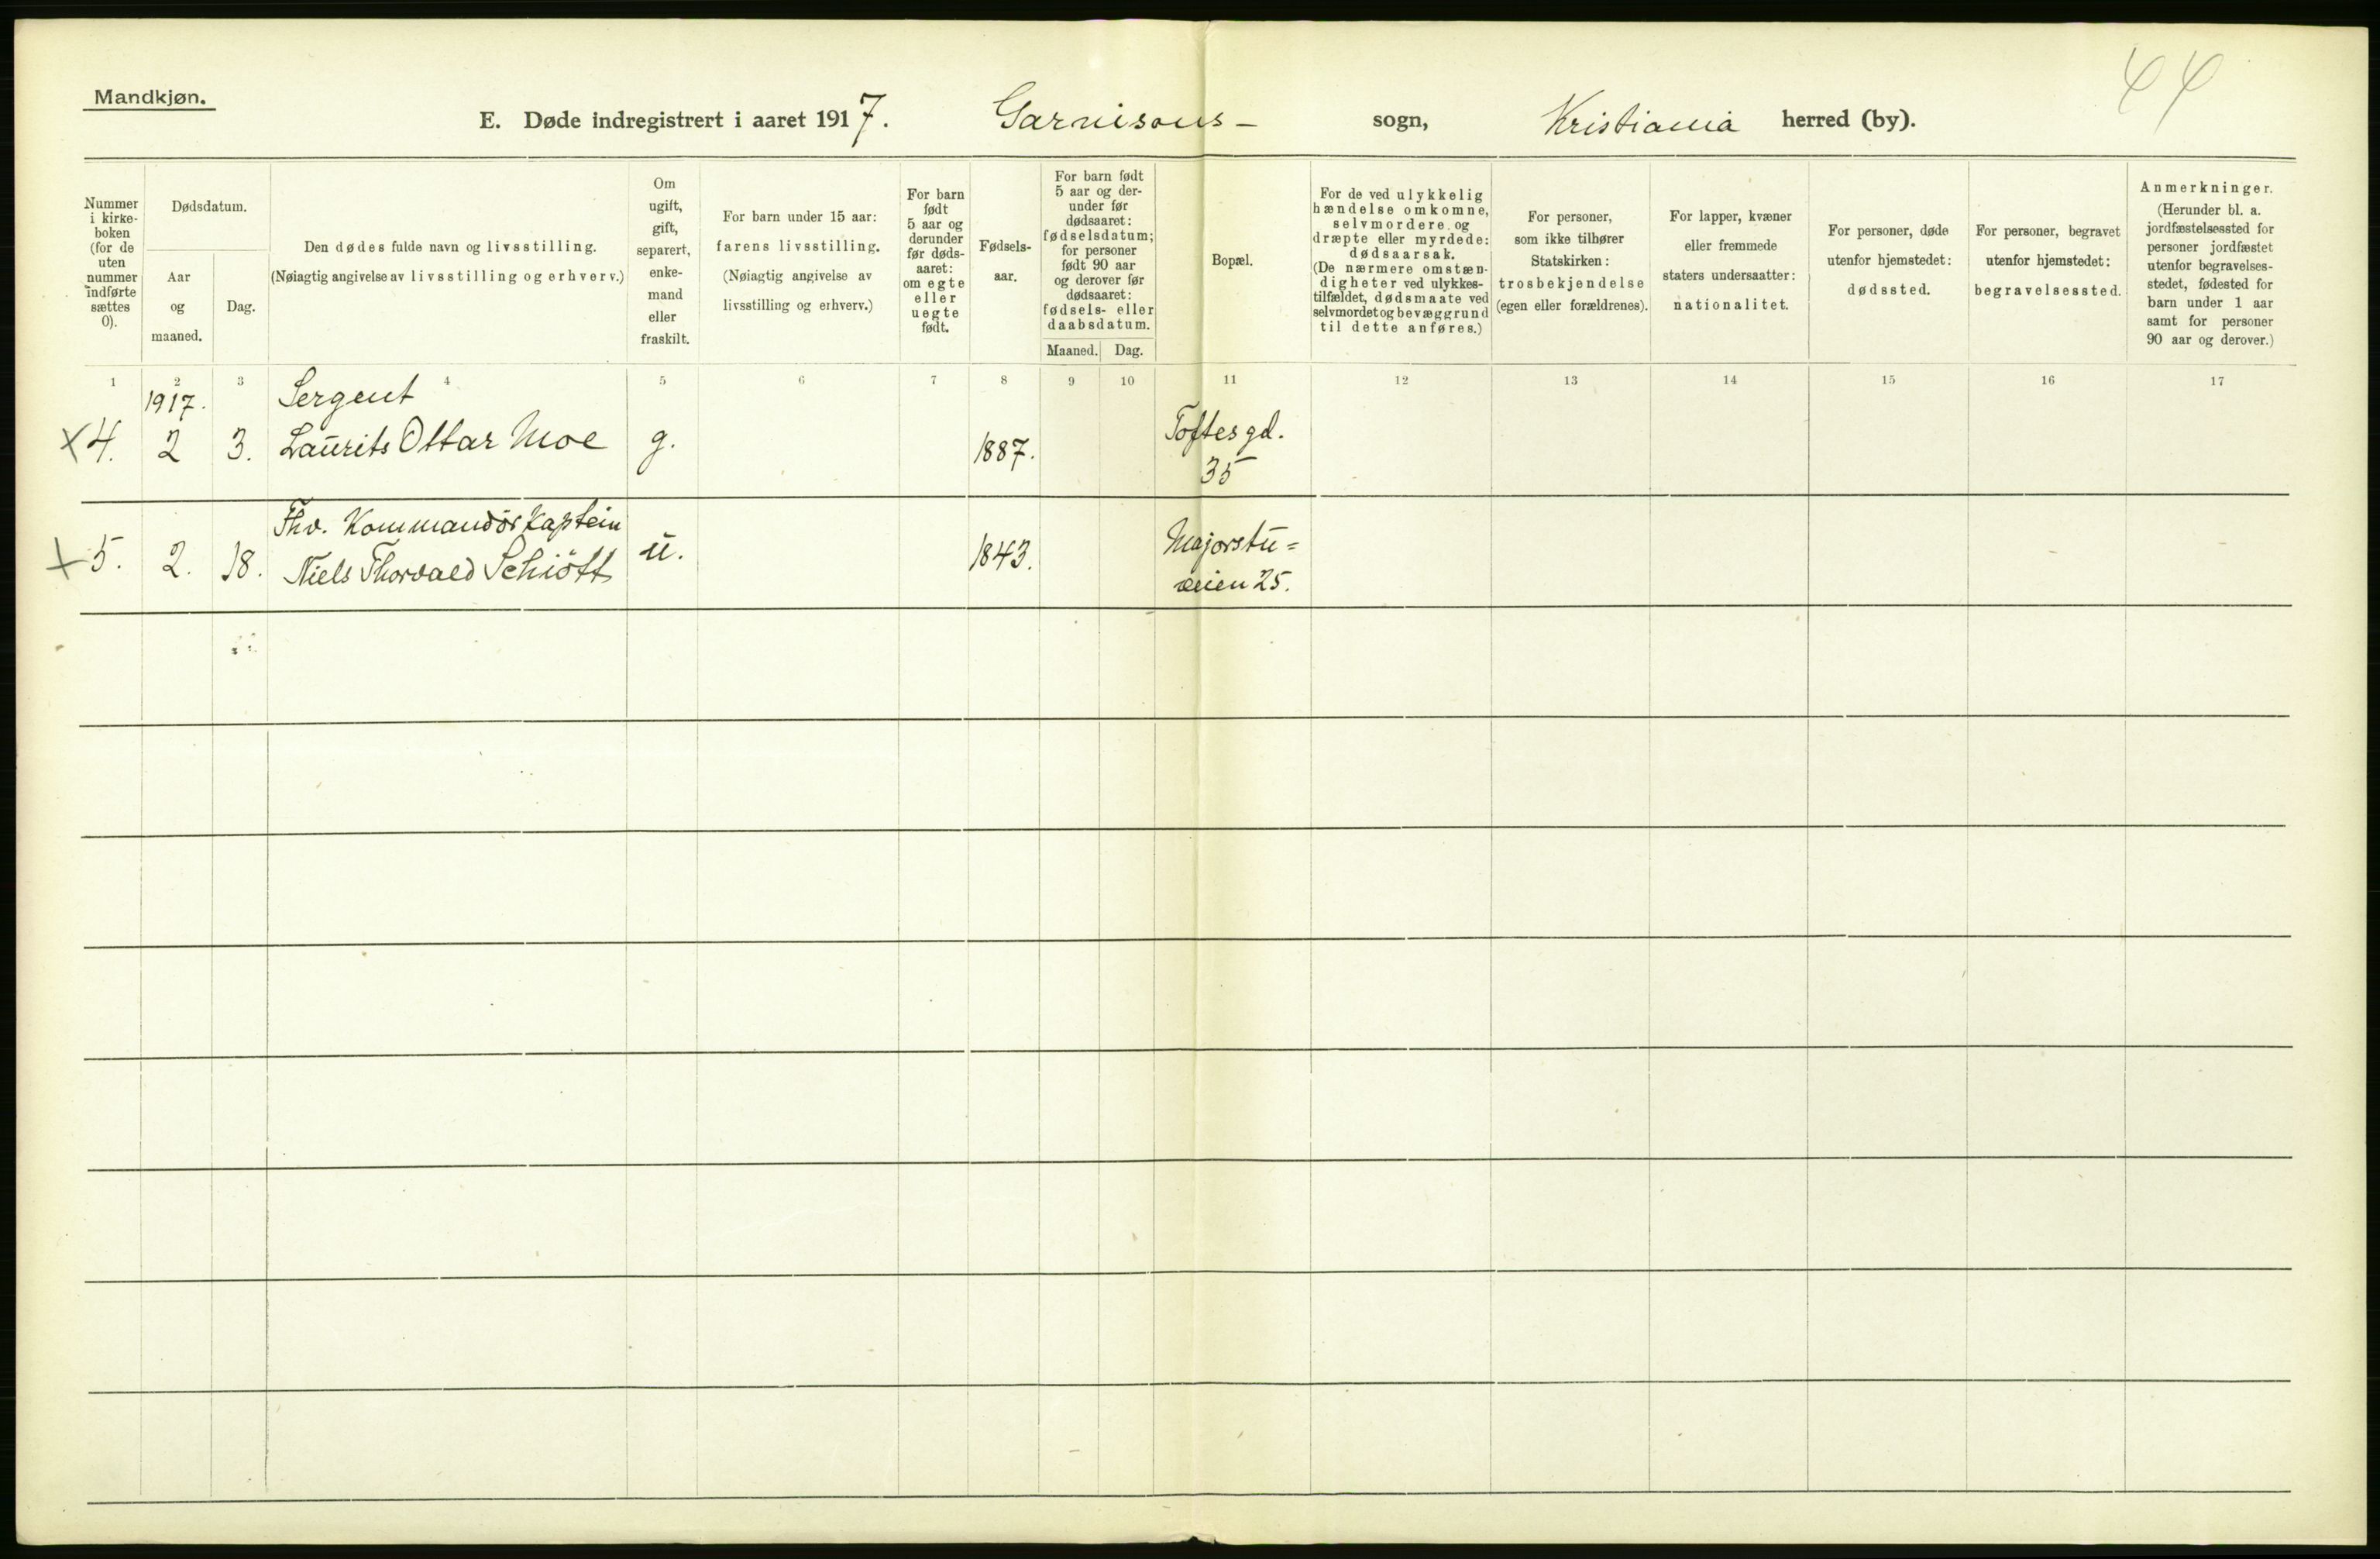 Mandkjøn.
44
E. Døde indregistrert i aaret 1917. Garnisons- sogn, Kristiania herred (by).
Nummer i kirke- boken (for de uten nummer indførte sættes 0).
Dødsdatum.
Aar og maaned.
Dag.
Den dødes fulde navn og livsstilling.
(Nøiagtig angivelse av livsstilling og erhverv.)
Om ugift, gift, separert, enke- mand eller fraskilt.
For barn under 15 aar:
farens livsstilling.
(Nøiagtig angivelse av
livsstilling og erhverv.)
For barn født 5 aar og derunder før døds- aaret: om egte eller uegte født.
Fødsels- aar.
For barn født 5 aar og der- under før dødsaaret: fødselsdatum; for personer født 90 aar og derover før dødsaaret: fødsels- eller daabsdatum.
Maaned. Dag.
Bopæl.
For de ved ulykkelig hændelse omkomne, selvmordere og dræpte eller myrdede: dødsaarsak. (De nærmere omstæn- digheter ved ulykkes- tilfældet, dødsmaate ved selvmordet og bevæggrund til dette anføres.)
For personer, som ikke tilhører Statskirken: trosbekjendelse (egen eller forældrenes).
For lapper, kvæner eller fremmede staters undersaatter: nationalitet.
For personer, døde utenfor hjemstedet: dødssted.
For personer, begravet utenfor hjemstedet: begravelsessted.
Anmerkninger. (Herunder bl. a. jordfæstelsessted for personer jordfæstet utenfor begravelses- stedet, fødested for barn under 1 aar samt for personer 90 aar og derover.)
1 2 3 4 5 6 7 8 9 10 11 12 13 14 15 16 17
1917. Sergent
x 4. 2 3. Laurits Ottar Moe g. 1887. Toftesgd.
35
Fhv. Kommandörkaptein
x 5. 2. 18. Niels Thorvald Schiött u. 1843. Majorstu=
veien 25.